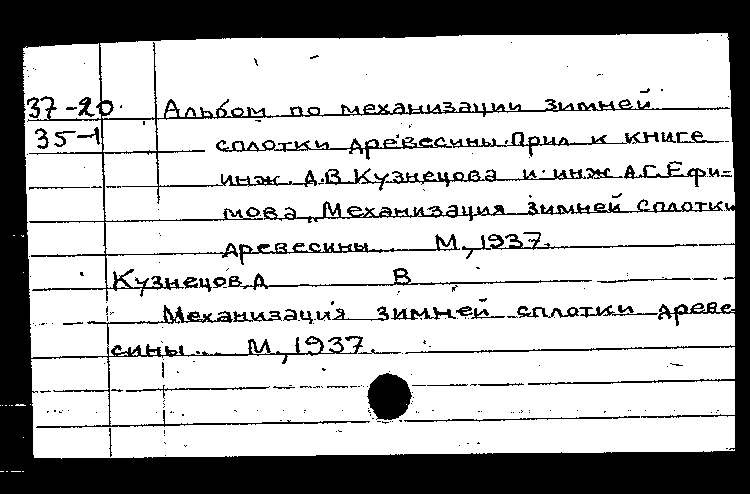 37-20 Альбом по механизации зимней
35-1 сплотки древесины. Прил к книге
инж. Д.В Кузнецова и инж А.Г. Ефи-
мова „Механизация зимней сплотки
древесины... М., 1937.
Кузнецов, Д В
Механизация зимней сплотки древе-
сины... М., 1937.